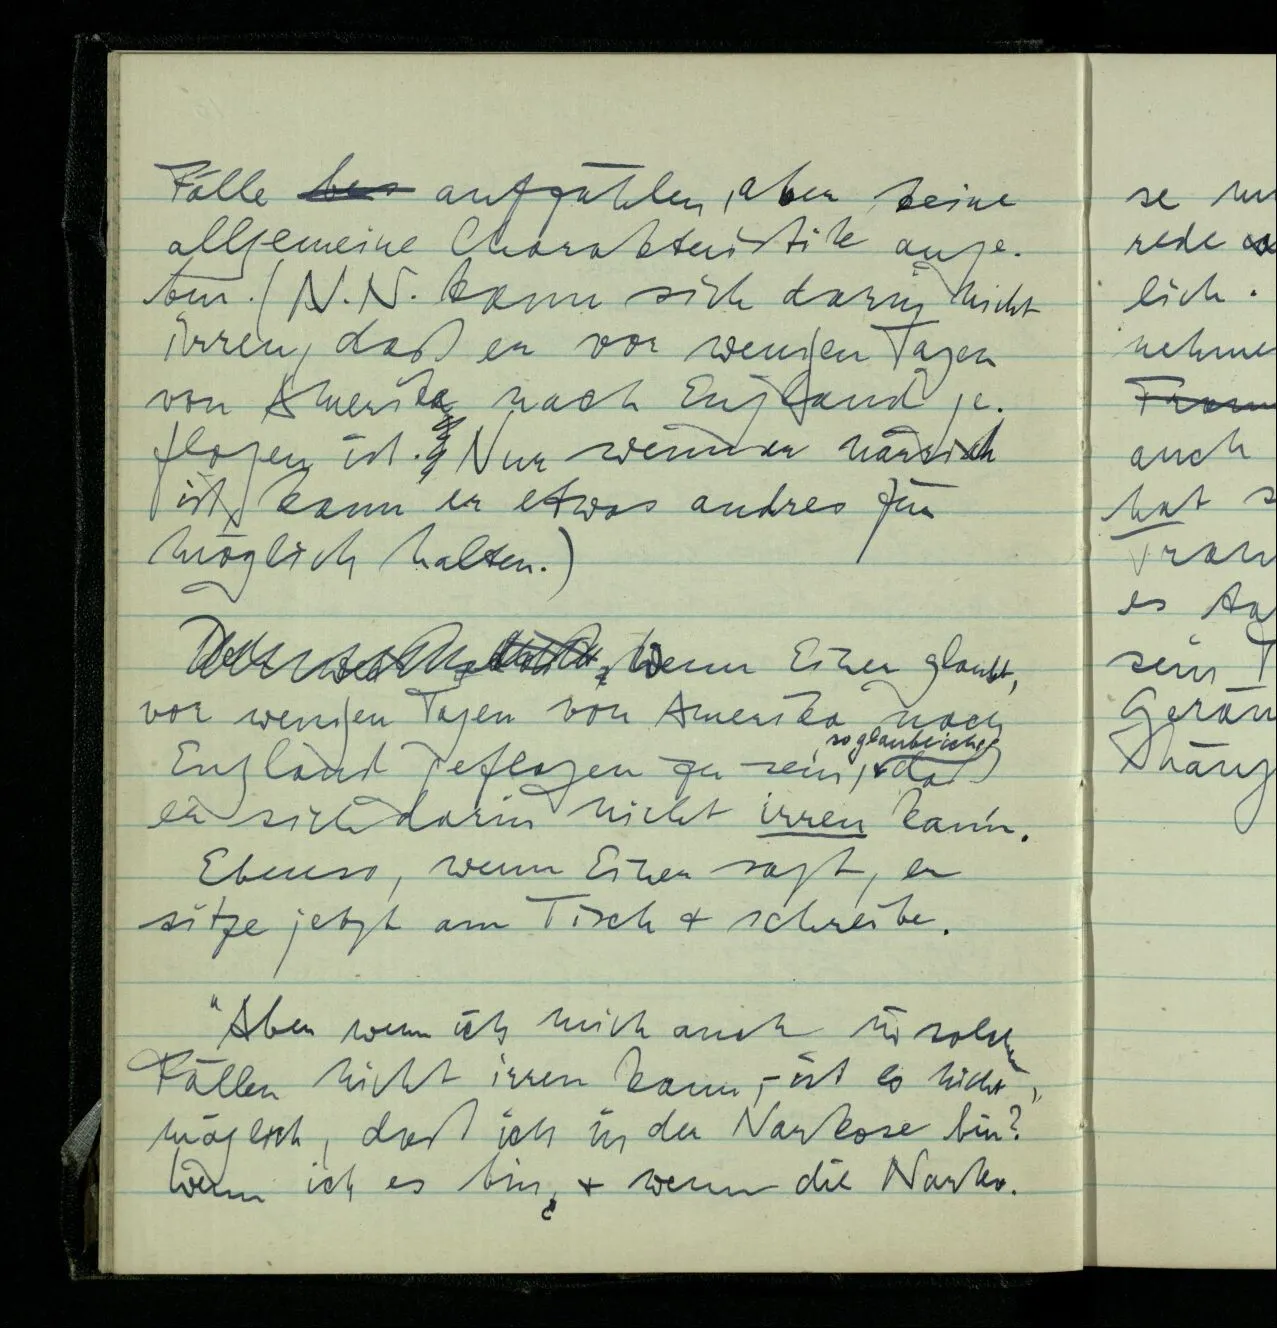 Fälle aufzählen, aber keine
allgemeine Charakteristik ange-
ben. (N.N. kann sich darin nicht
irren, daß er vor wenigen Tagen
von Amerika nach England ge-
flogen ist. Nur wenn er närrisch
ist, kann er etwas andres für
möglich halten.)
Wenn Einer glaubt,
vor wenigen Tagen von Amerika nach
so glaube ich
England geflogen zu sein, daß
er sich darin nicht irren kann.
Ebenso, wenn Einer sagt, er
sitze jetzt am Tisch + schreibe.
"Aber wenn ich mich auch in solchen
Fällen nicht irren kann, – ist es nicht
möglich, daß ich in der Narkose bin?
Wenn ich es bin, + wenn die Narko-
se
rede
lich.
nehme
auch
hat s
es
sein T